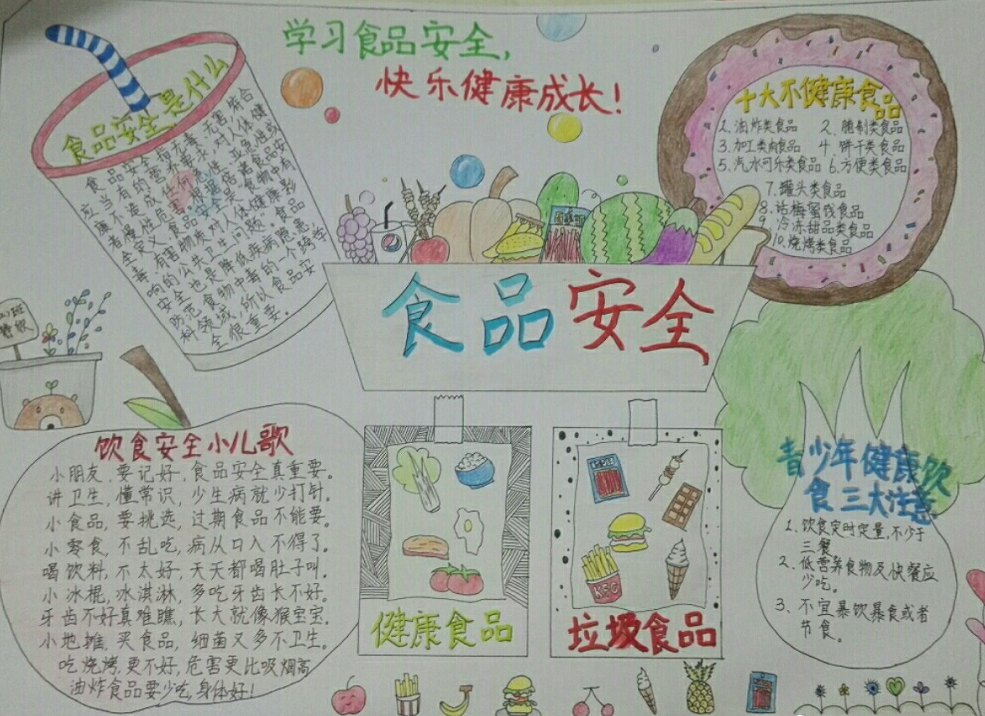 学习食品安全,
快乐健康成长!
食品安全是什么
食品安全指无毒、无害符合
应当有的营养要求,对人体健
康不造成任何急性、亚急性或
者慢性危害。根据倍诺食品安
全定义,食品安全是“食物中有
毒、有害物质对人体健康影
响的公共卫生问题”。食品
安全也是降低疾病隐患
防范食物中毒的一个跨学
科领域,所以食品安
全很重要。
十大不健康食品
1.油炸类食品
2.腌制类食品
3.加工类肉食品
4.饼干类食品
5.汽水可乐类食品
6.方便类食品
7.罐头类食品
8.话梅蜜饯食品
9.冷冻甜品类食品
10.烧烤类食品
食品安全
饮食安全小儿歌
小朋友,要记好,食品安全真重要。
讲卫生,懂常识,少生病就少打针。
小食品,要挑选,过期食品不能要。
小零食,不乱吃,病从口入不得了。
喝饮料,不太好,天天都喝肚子叫。
小冰棍,冰淇淋,多吃牙齿长不好。
牙齿不好真难瞧,长大就像猴宝宝。
小地摊,买食品,细菌又多不卫生。
吃烧烤,更不好,危害更比吸烟高
油炸食品要少吃,身体好!
健康食品
KFC
垃圾食品
青少年健康饮
食三大注意
1、饮食定时定量,不少于
三餐。
2、低营养食物及快餐应
少吃。
3、不宜暴饮暴食或者
节食。